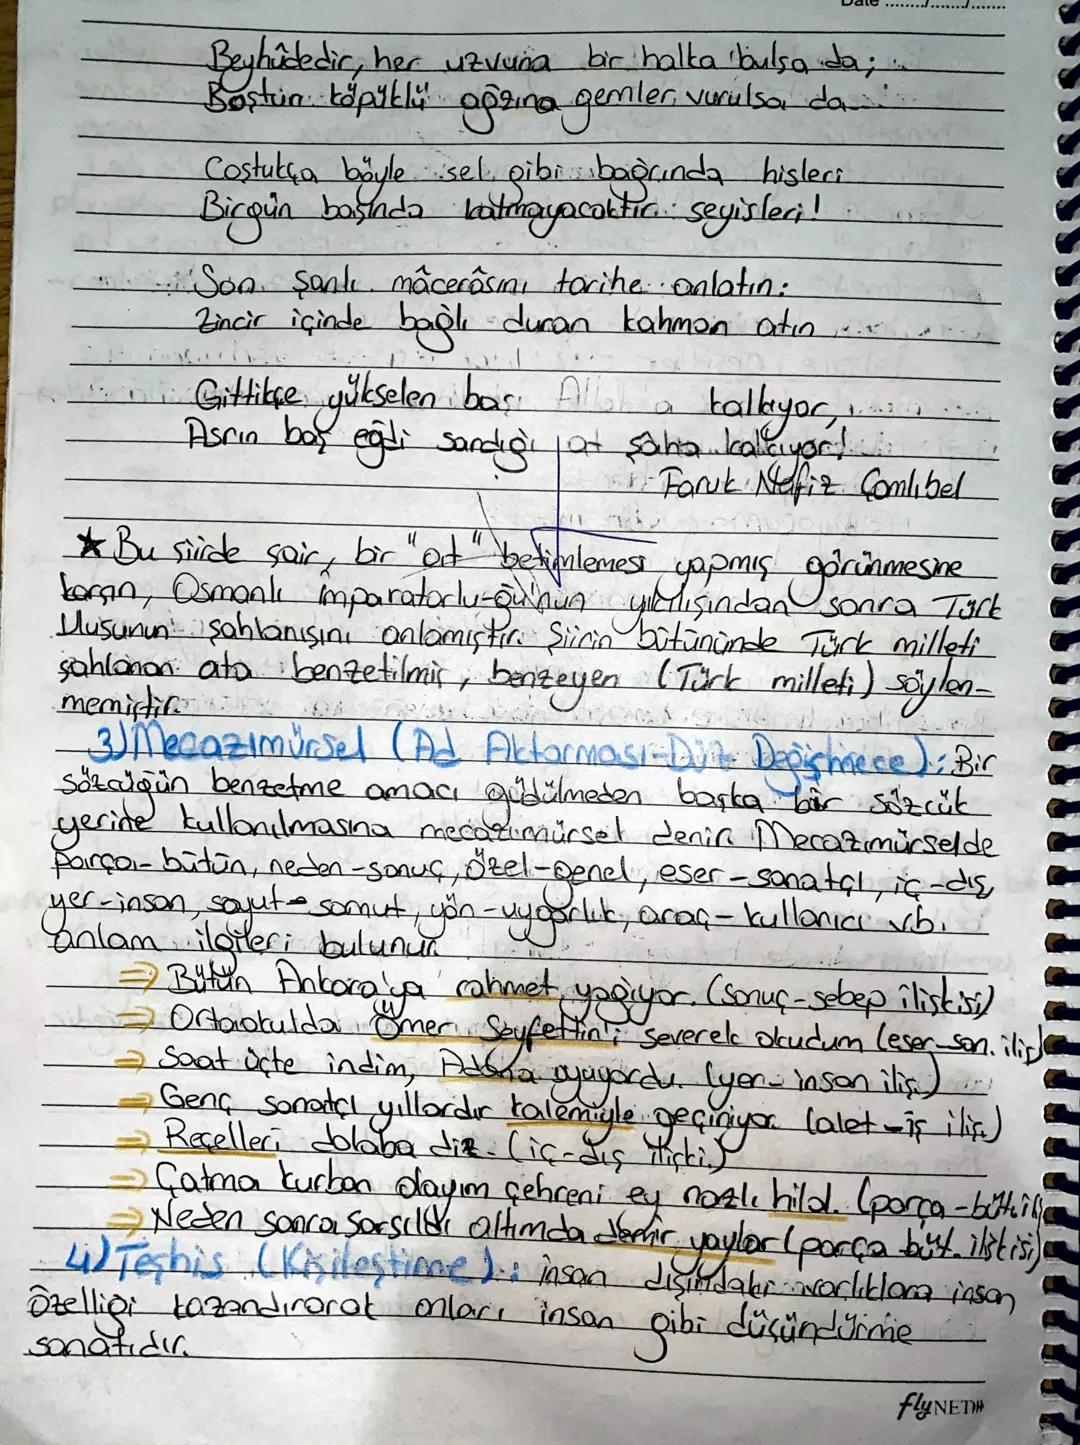 Date ......../......../........
Beyhûdedir, her uzvuna bir halka bulsa da;
Boştur köpüklü ağzına gemler vurulsa da...
Coştukça böyle sel gibi bağrında hisleri
Birgün başında kalmayacaktır seyisleri!
Son şanlı mâcerâsını tarihe anlatın:
Zincir içinde bağlı duran kahman atın
Gittikçe yükselen başı Allah'a kalkıyor,
Asrın baş eğdi sandığı at şaha kalkıyor!
Faruk Nafiz Çamlıbel
★ Bu şiirde şair, bir "at" betimlemesi yapmış görünmesine
karşın, Osmanlı İmparatorlu-ğu'nun yıkılışından sonra Türk
Ulusunun şahlanışını anlamıştır. Şiirin bütününde Türk milleti
şahlanan ata benzetilmiş, benzeyen (Türk milleti) söylen-
memiştir.
3) Mecazımürsel (Ad Aktarması-Düz Değişmece): Bir
sözcüğün benzetme amacı güdülmeden başka bir sözcük
yerine kullanılmasına mecazımürsel denir. Mecazımürselde
parça-bütün, neden-sonuç, özel-genel, eser-sanatçı, iç-dış,
yer-insan, soyut-somut, yön-uygarlık, araç-kullanıcı vb.
anlam ilgileri bulunur.
⇒ Bütün Ankara'ya rahmet yağıyor. (sonuç-sebep ilişkisi)
⇒ Ortaokulda Ömer Seyfettin'i severek okudum (eser-san. iliş)
⇒ Saat üçte indim, Adana uyuyordu. (yer-insan iliş.)
⇒ Genç sanatçı yıllardır kalemiyle geçiniyor. (alet-iş iliş.)
⇒ Reçelleri dolaba diz. (iç-dış ilişki.)
⇒ Çatma kurban olayım çehreni ey nazlı hilal. (parça-büt. iliş
⇒ Neden sonra sarsıldı altımda demir yaylar (parça büt. ilişkisi)
4) Teşhis (Kişileştirme): insan dışındaki varlıklara insan
özelliği kazandırarak onları insan gibi düşündürme
sanatıdır.
flyNET